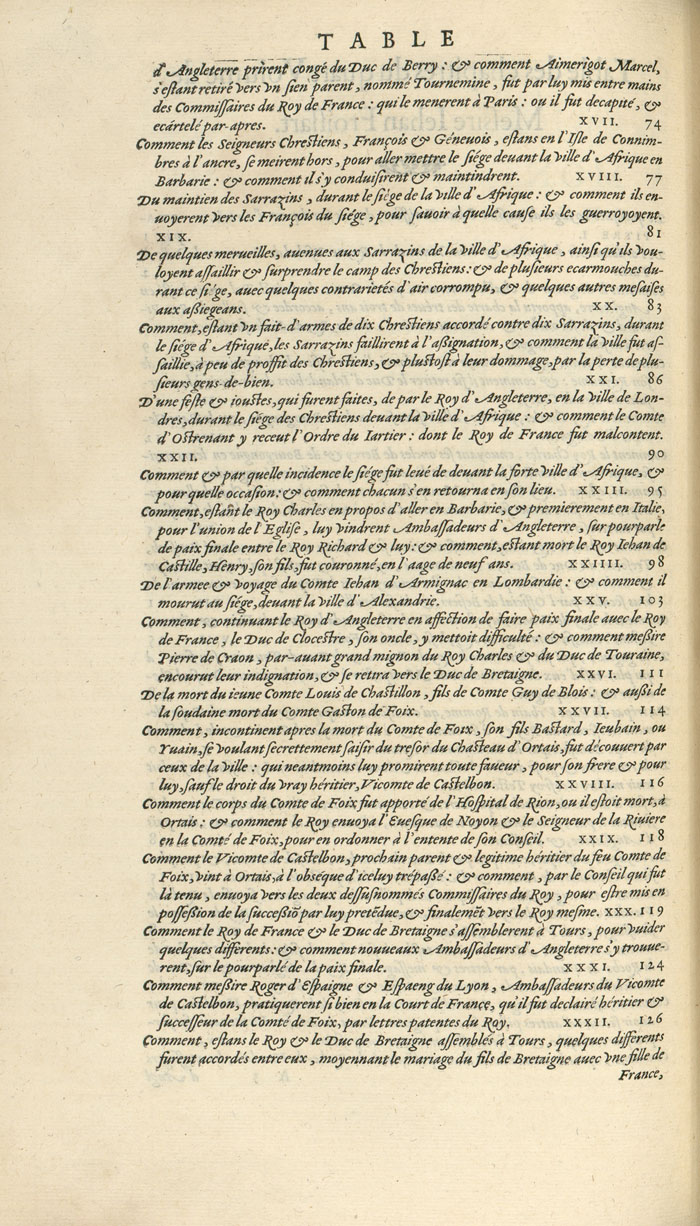 TABLE
d'Angleterre prirent congé du Duc de Berry : & comment Aimerigot Marcel,
s'estant retiré vers vn sien parent, nommé Tournemine, fut par luy mis entre mains
des Commissaires du Roy de France : qui le menerent à Paris : ou il fut decapité, &
ecártelé par-apres. XVII. 74
Comment les Seigneurs Chrestiens, François & Géneuois, estans en l'Isle de Connim-
bres à l'ancre, se meirent hors, pour aller mettre le siége deuant la ville d'Afrique en
Barbarie : & comment il s'y conduisirent & maintindrent. XVIII. 77
Du maintien des Sarrazins, durant le siége de la ville d'Afrique : & comment ils en-
uoyerent vers les François du siége, pour sauoir à quelle cause ils les guerroyoyent.
XIX. 81
De quelques merueilles, auenues aux Sarrazins de la ville d'Afrique, ainsi qu'ils vou-
loyent assaillir & surprendre le camp des Chrestiens: & de plusieurs ecarmouches du-
rant ce siége, auec quelques contrarietés d'air corrompu, & quelques autres mesaises
aux assiegeans. XX. 83
Comment, estant vn fait-d'armes de dix Chrestiens accordé contre dix Sarrazins, durant
le siége d'Afrique, les Sarrazins faillirent à l'assignation, & comment la ville fut as-
saillie, à peu de proffit des Chrestiens, & plustost à leur dommage, par la perte de plu-
sieurs gens-de-bien. XXI. 86
D'une feste & ioustes, qui furent faites, de par le Roy d'Angleterre, en la ville de Lon-
dres, durant le siége des Chrestiens deuant la ville d'Afrique : & comment le Comte
d'Ostrenant y receut l'Ordre du Iartier : dont le Roy de France fut malcontent.
XXII. 90
Comment & par quelle incidence le siége fut leué de deuant la forte ville d'Afrique, &
pour quelle occasion: & comment chacun s'en retourna en son lieu. XXIII. 95
Comment, estant le Roy Charles en propos d'aller en Barbarie, & premierement en Italie,
pour l'union de l'Eglise, luy vindrent Ambassadeurs d'Angleterre, sur pourparle
de paix finale entre le Roy Richard & luy: & comment, estant mort le Roy Iehan de
Castille, Henry, son fils, fut couronné, en l'aage de neuf ans. XXIIII. 98
De l'armee & voyage du Comte Iehan d'Armignac en Lombardie : & comment il
mourut au siége, deuant la ville d'Alexandrie. XXV. 103
Comment, continuant le Roy d'Angleterre en affection de faire paix finale auec le Roy
de France, le Duc de Clocestre, son oncle, y mettoit difficulté : & comment messire
Pierre de Craon, par-auant grand mignon du Roy Charles & du Duc de Touraine,
encourut leur indignation, & se retira vers le Duc de Bretaigne. XXVI. 111
De la mort du ieune Comte Louis de Chastillon, fils de Comte Guy de Blois : & aussi de
la soudaine mort du Comte Gaston de Foix. XXVII. 114
Comment, incontinent apres la mort du Comte de Foix, son fils Bastard, Ieubain, ou
Yuain, se voulant secrettement saisir du tresor du Chasteau d'Ortais, fut découuert par
ceux de la ville : qui neantmoins luy promirent toute faueur, pour son frere & pour
luy, sauf le droit du vray héritier, Vicomte de Castelbon. XXVIII. 116
Comment le corps du Comte de Foix fut apporté de l'Hospital de Rion, ou il estoit mort, à
Ortais : & comment le Roy enuoya l'Euesque de Noyon & le Seigneur de la Riuiere
en la Comté de Foix, pour en ordonner à l'entente de son Conseil. XXIX. 118
Comment le Vicomte de Castelbon, prochain parent & legitime héritier du feu Comte de
Foix, vint à Ortais, à l'obséque d'iceluy trépassé : & comment, par le Conseil qui fut
là tenu, enuoya vers les deux dessusnommés Commissaires du Roy, pour estre mis en
possession de la successiõ par luy pretẽdue, & finalemẽt vers le Roy mesme. XXX. 119
Comment le Roy de France & le Duc de Bretaigne s'assemblerent à Tours, pour vuider
quelques differents: & comment nouueaux Ambassadeurs d'Angleterre s'y trouue-
rent, sur le pourparlé de la paix finale. XXXI. 124
Comment messire Roger d'Espaigne & Espaeng du Lyon, Ambassadeurs du Vicomte
de Castelbon, pratiquerent si bien en la Court de France, qu'il fut declairé héritier &
successeur de la Comté de Foix, par lettres patentes du Roy. XXXII. 126
Comment, estans le Roy & le Duc de Bretaigne assemblés à Tours, quelques différents
furent accordés entre eux, moyennant le mariage du fils de Bretaigne auec vne fille de
France,